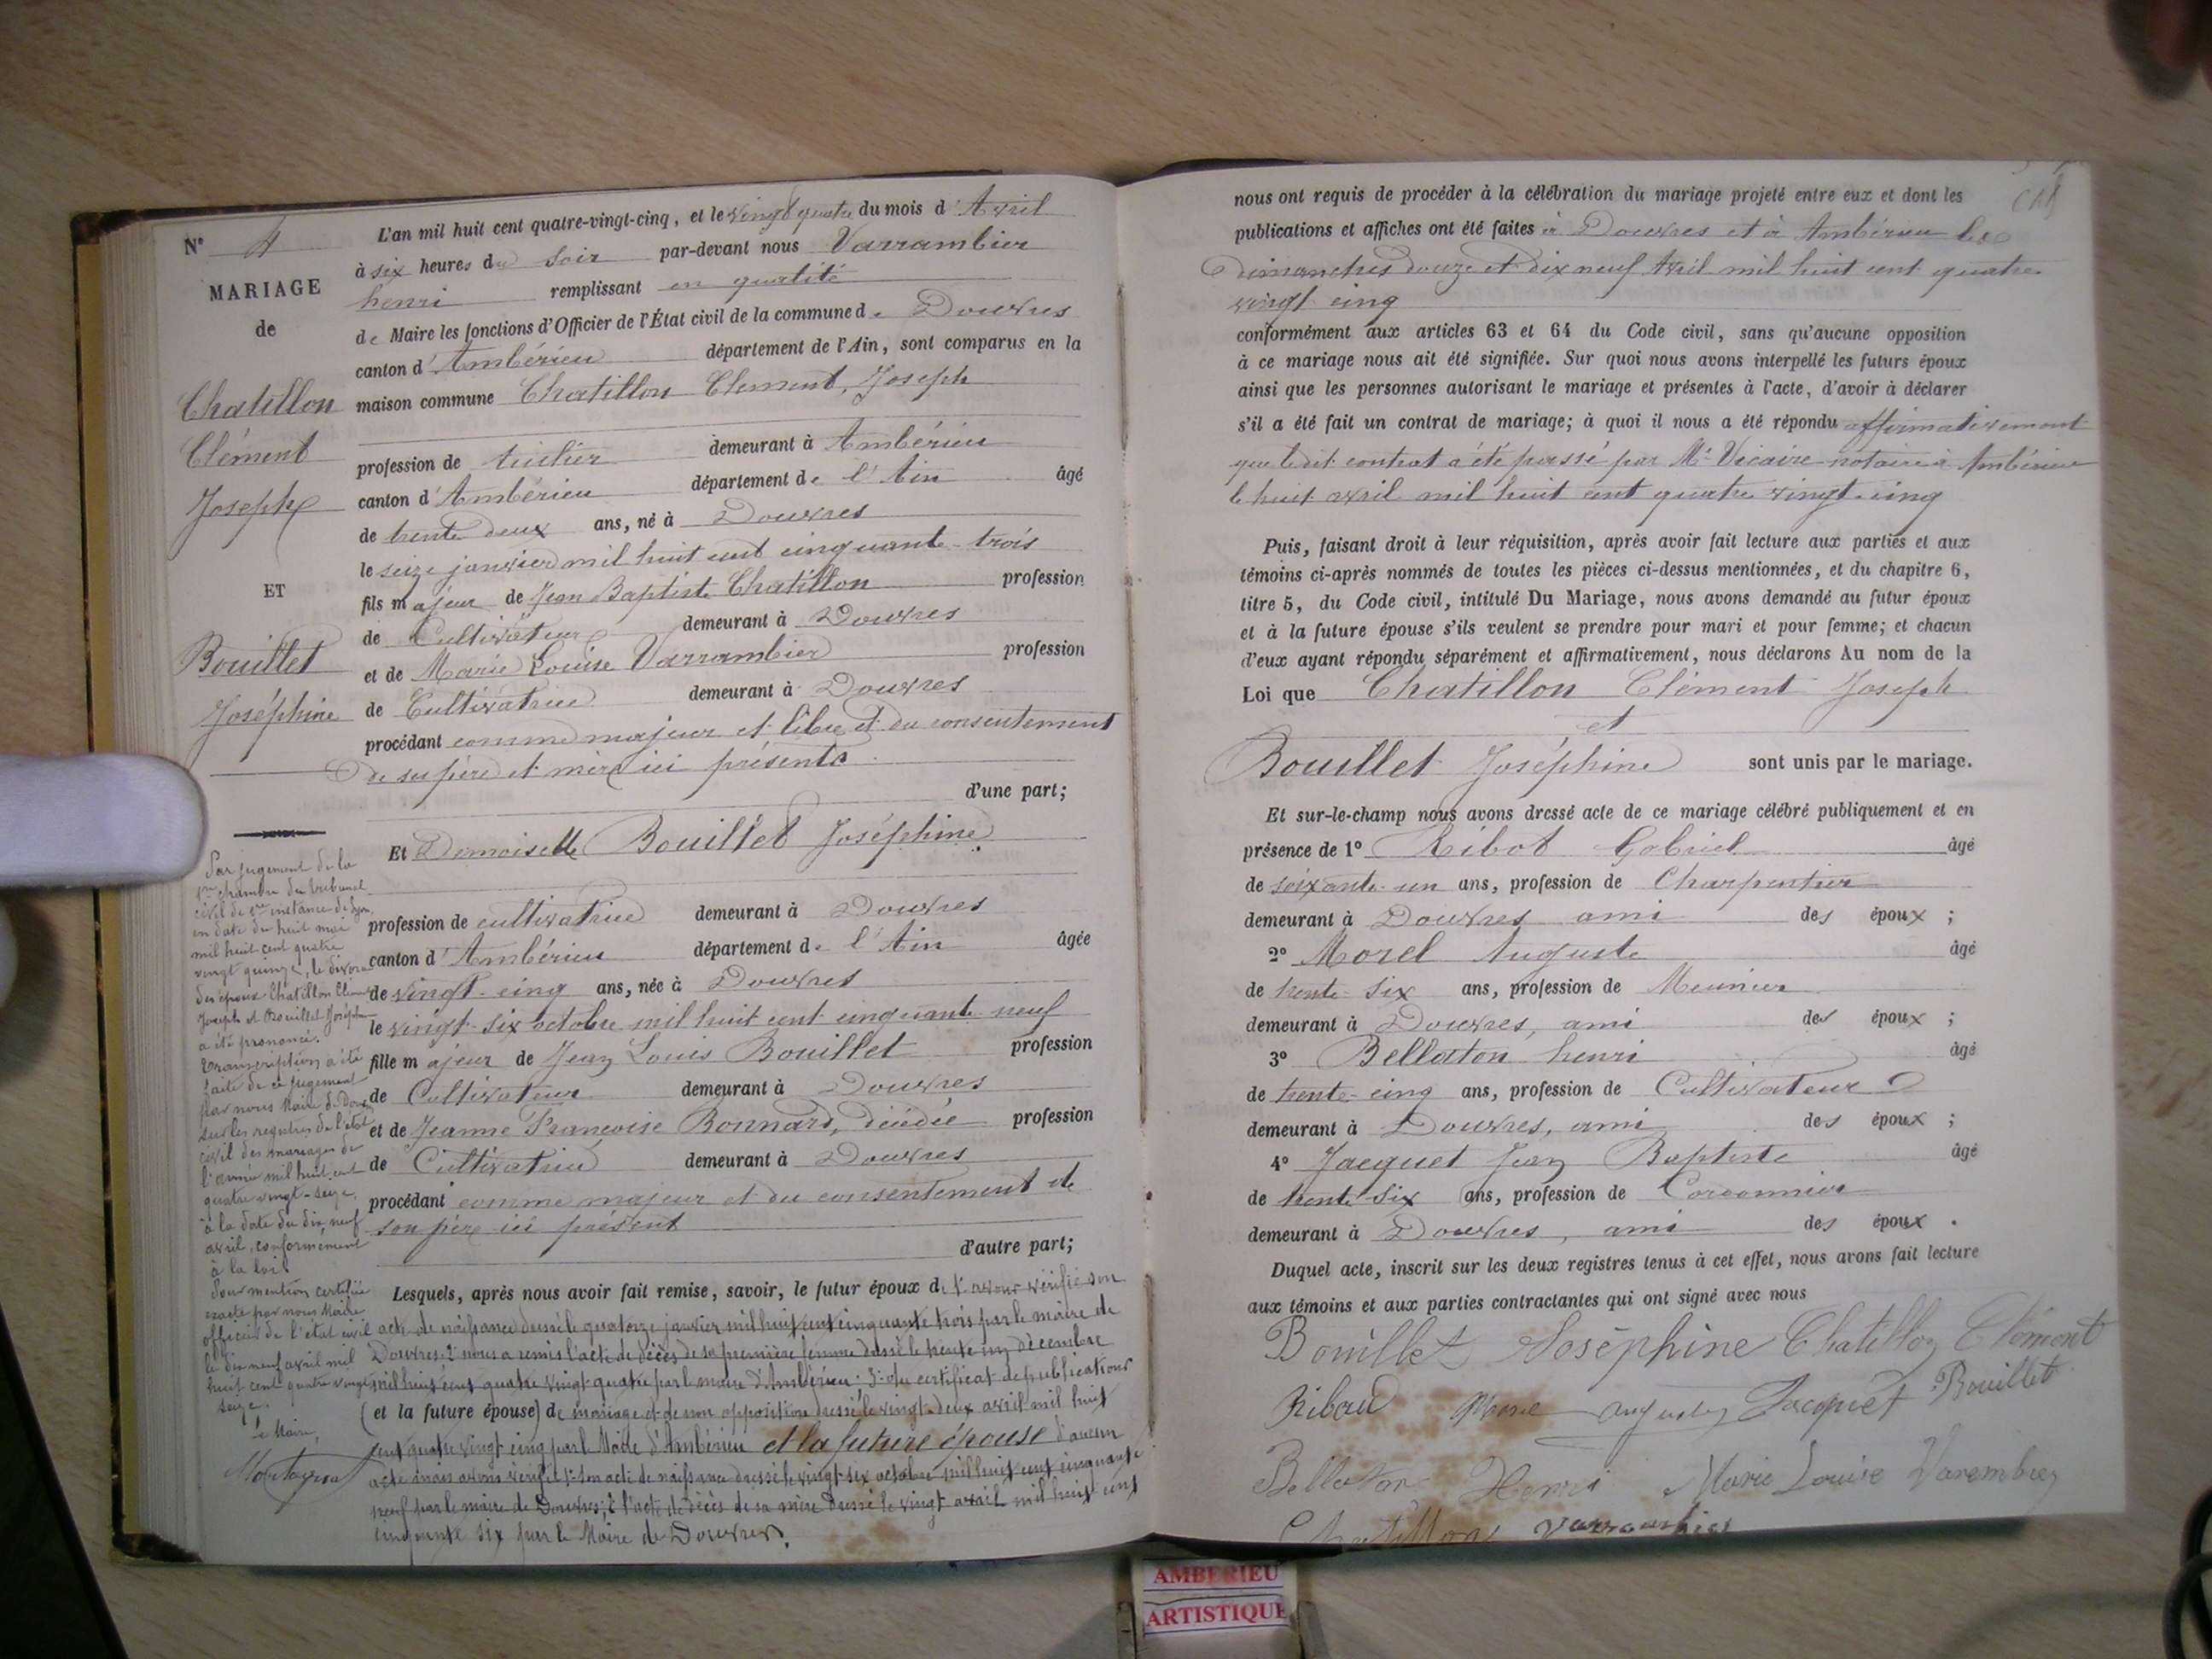 N° 4
MARIAGE
de
Chatillon
Clément
Joseph
ET
Bouillet
Joséphine
Par jugement de la
1re chambre du tribunal
civil de 1re instance de Lyon,
en date du huit mai
mil huit cent quatre
vingt quinze, le divorce
des époux Chatillon Clément
Joseph et Bouillet Joséphine
a été prononcé.
Transcription a été
faite de ce jugement
par nous Maire de Douvres
sur les registres de l'état
civil des mariages de
l'année mil huit cent
quatre vingt-seize,
à la date du dix neuf
avril, conformément
à la loi.
Pour mention certifiée
exacte par nous Maire
officier de l'état civil
le dix neuf avril mil
huit cent quatre vingt
seize.
Le Maire,
L'an mil huit cent quatre-vingt-cinq, et le vingt quatre du mois d'Avril
à six heures du soir par-devant nous Varrambier
henri remplissant en qualité
de Maire les fonctions d'Officier de l'État civil de la commune de Douvres
canton d'Ambérieu département de l'Ain, sont comparus en la
maison commune Chatillon Clement, Joseph
profession de demeurant à Ambérieu
canton d'Ambérieu département de l'Ain âgé
de trente deux ans, né à Douvres
le seize janvier mil huit cent cinquante-trois
fils majeur de Jean Baptiste Chatillon profession
de Cultivateur demeurant à Douvres
et de Marie Louise Varrambier profession
de Cultivatrice demeurant à Douvres
procédant comme majeur et libre et du consentement
de ses père et mère ici présents
d'une part;
Et Demoiselle Bouillet Joséphine
profession de cultivatrice demeurant à Douvres
canton d'Ambérieu département de l'Ain âgée
de vingt-cinq ans, née à Douvres
le vingt-six octobre mil huit cent cinquante neuf
fille majeur de Jean Louis Bouillet profession
de Cultivateur demeurant à Douvres
et de Jeanne Françoise Bonnard, décédée profession
de Cultivatrice demeurant à Douvres
procédant comme majeur et du consentement de
son père ici présent
d'autre part;
Lesquels, après nous avoir fait remise, savoir, le futur époux de 1° avoir vérifié son
acte de naissance dressé le quatorze janvier mil huit cent cinquante trois par le maire de
Douvres; 2° nous a remis l'acte de décès de sa première femme dressé le trente un décembre
mil huit cent quatre vingt quatre par le maire d'Ambérieu; 3° du certificat de publications
(et la future épouse) de mariage et de non opposition dressé le vingt-deux avril mil huit
cent quatre vingt cinq par le Maire d'Ambérieu et la future épouse d'aucun
acte mais avons vérifié 1° son acte de naissance dressé le vingt-six octobre mil huit cent cinquante
neuf par le maire de Douvres; 2° l'acte de décès de sa mère dressé le vingt avril mil huit cent
cinquante six par le Maire de Douvres.
nous ont requis de procéder à la célébration du mariage projeté entre eux et dont les
publications et affiches ont été faites à Douvres et à Ambérieu les
dimanches douze et dix neuf Avril mil huit cent quatre
vingt cinq
conformément aux articles 63 et 64 du Code civil, sans qu'aucune opposition
à ce mariage nous ait été signifiée. Sur quoi nous avons interpellé les futurs époux
ainsi que les personnes autorisant le mariage et présentes à l'acte, d'avoir à déclarer
s'il a été fait un contrat de mariage; à quoi il nous a été répondu affirmativement
que ledit contrat a été passé par Me Vicaire notaire à Ambérieu
le huit avril mil huit cent quatre vingt-cinq
Puis, faisant droit à leur réquisition, après avoir fait lecture aux parties et aux
témoins ci-après nommés de toutes les pièces ci-dessus mentionnées, et du chapitre 6,
titre 5, du Code civil, intitulé Du Mariage, nous avons demandé au futur époux
et à la future épouse s'ils veulent se prendre pour mari et pour femme; et chacun
d'eux ayant répondu séparément et affirmativement, nous déclarons Au nom de la
Loi que Chatillon Clément Joseph
et
Bouillet Joséphine sont unis par le mariage.
Et sur-le-champ nous avons dressé acte de ce mariage célébré publiquement et en
présence de 1° Ribot Gabriel âgé
de soixante-un ans, profession de Charpentier
demeurant à Douvres ami des époux ;
2° Morel Auguste âgé
de trente-six ans, profession de Meunier
demeurant à Douvres, ami des époux ;
3° Bellaton henri âgé
de trente-cinq ans, profession de Cultivateur
demeurant à Douvres, ami des époux ;
4° Jacquet Jean Baptiste âgé
de trente-six ans, profession de Cordonnier
demeurant à Douvres, ami des époux .
Duquel acte, inscrit sur les deux registres tenus à cet effet, nous avons fait lecture
aux témoins et aux parties contractantes qui ont signé avec nous
Bouillet Joséphine Chatillon Clément
Riboud auguste Jacquet Bouillet
Bellaton Henri Marie Louise Varembier
Chatillon Varrambier
AMBERIEU
ARTISTIQUE